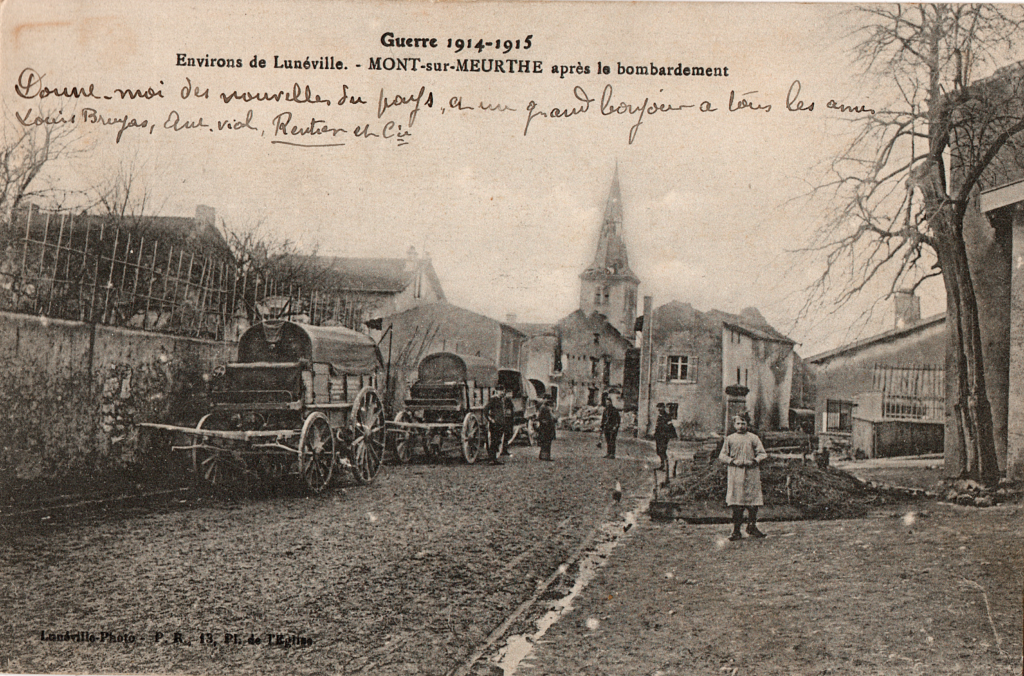 Guerre 1914-1915
Environs de Lunéville. - MONT-sur-MEURTHE après le bombardement
Donne-moi des nouvelles du pays, et un grand bonjour a tous les amis
Louis Bruyas, viol, Rentier et Cie
Lunéville-Photo - P. R., 13, Pl. de l'Eglise